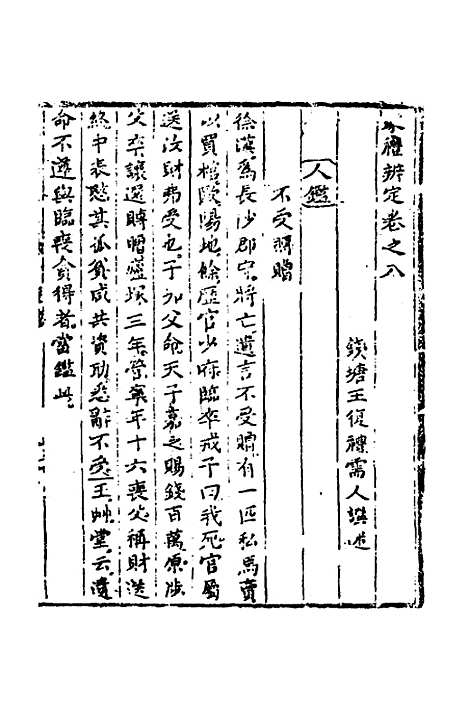 家禮辨定卷之八
錢塘王復禮需人譔述
人鑑
不受賻贈
徐湛爲長沙郡守將亡遺言不受贈有一匹私馬賣
以買棺歐陽地餘歷官少府臨卒戒子曰我死官屬
送汝財弗受也子如父命天子嘉之賜錢百萬原涉
父卒讓還賻贈廬塚三年管寧年十六喪父稱財送
終中表愍其孤貧咸共資助悉辭不受王艸堂云遺
命不遵與臨喪貪得者當鑑此